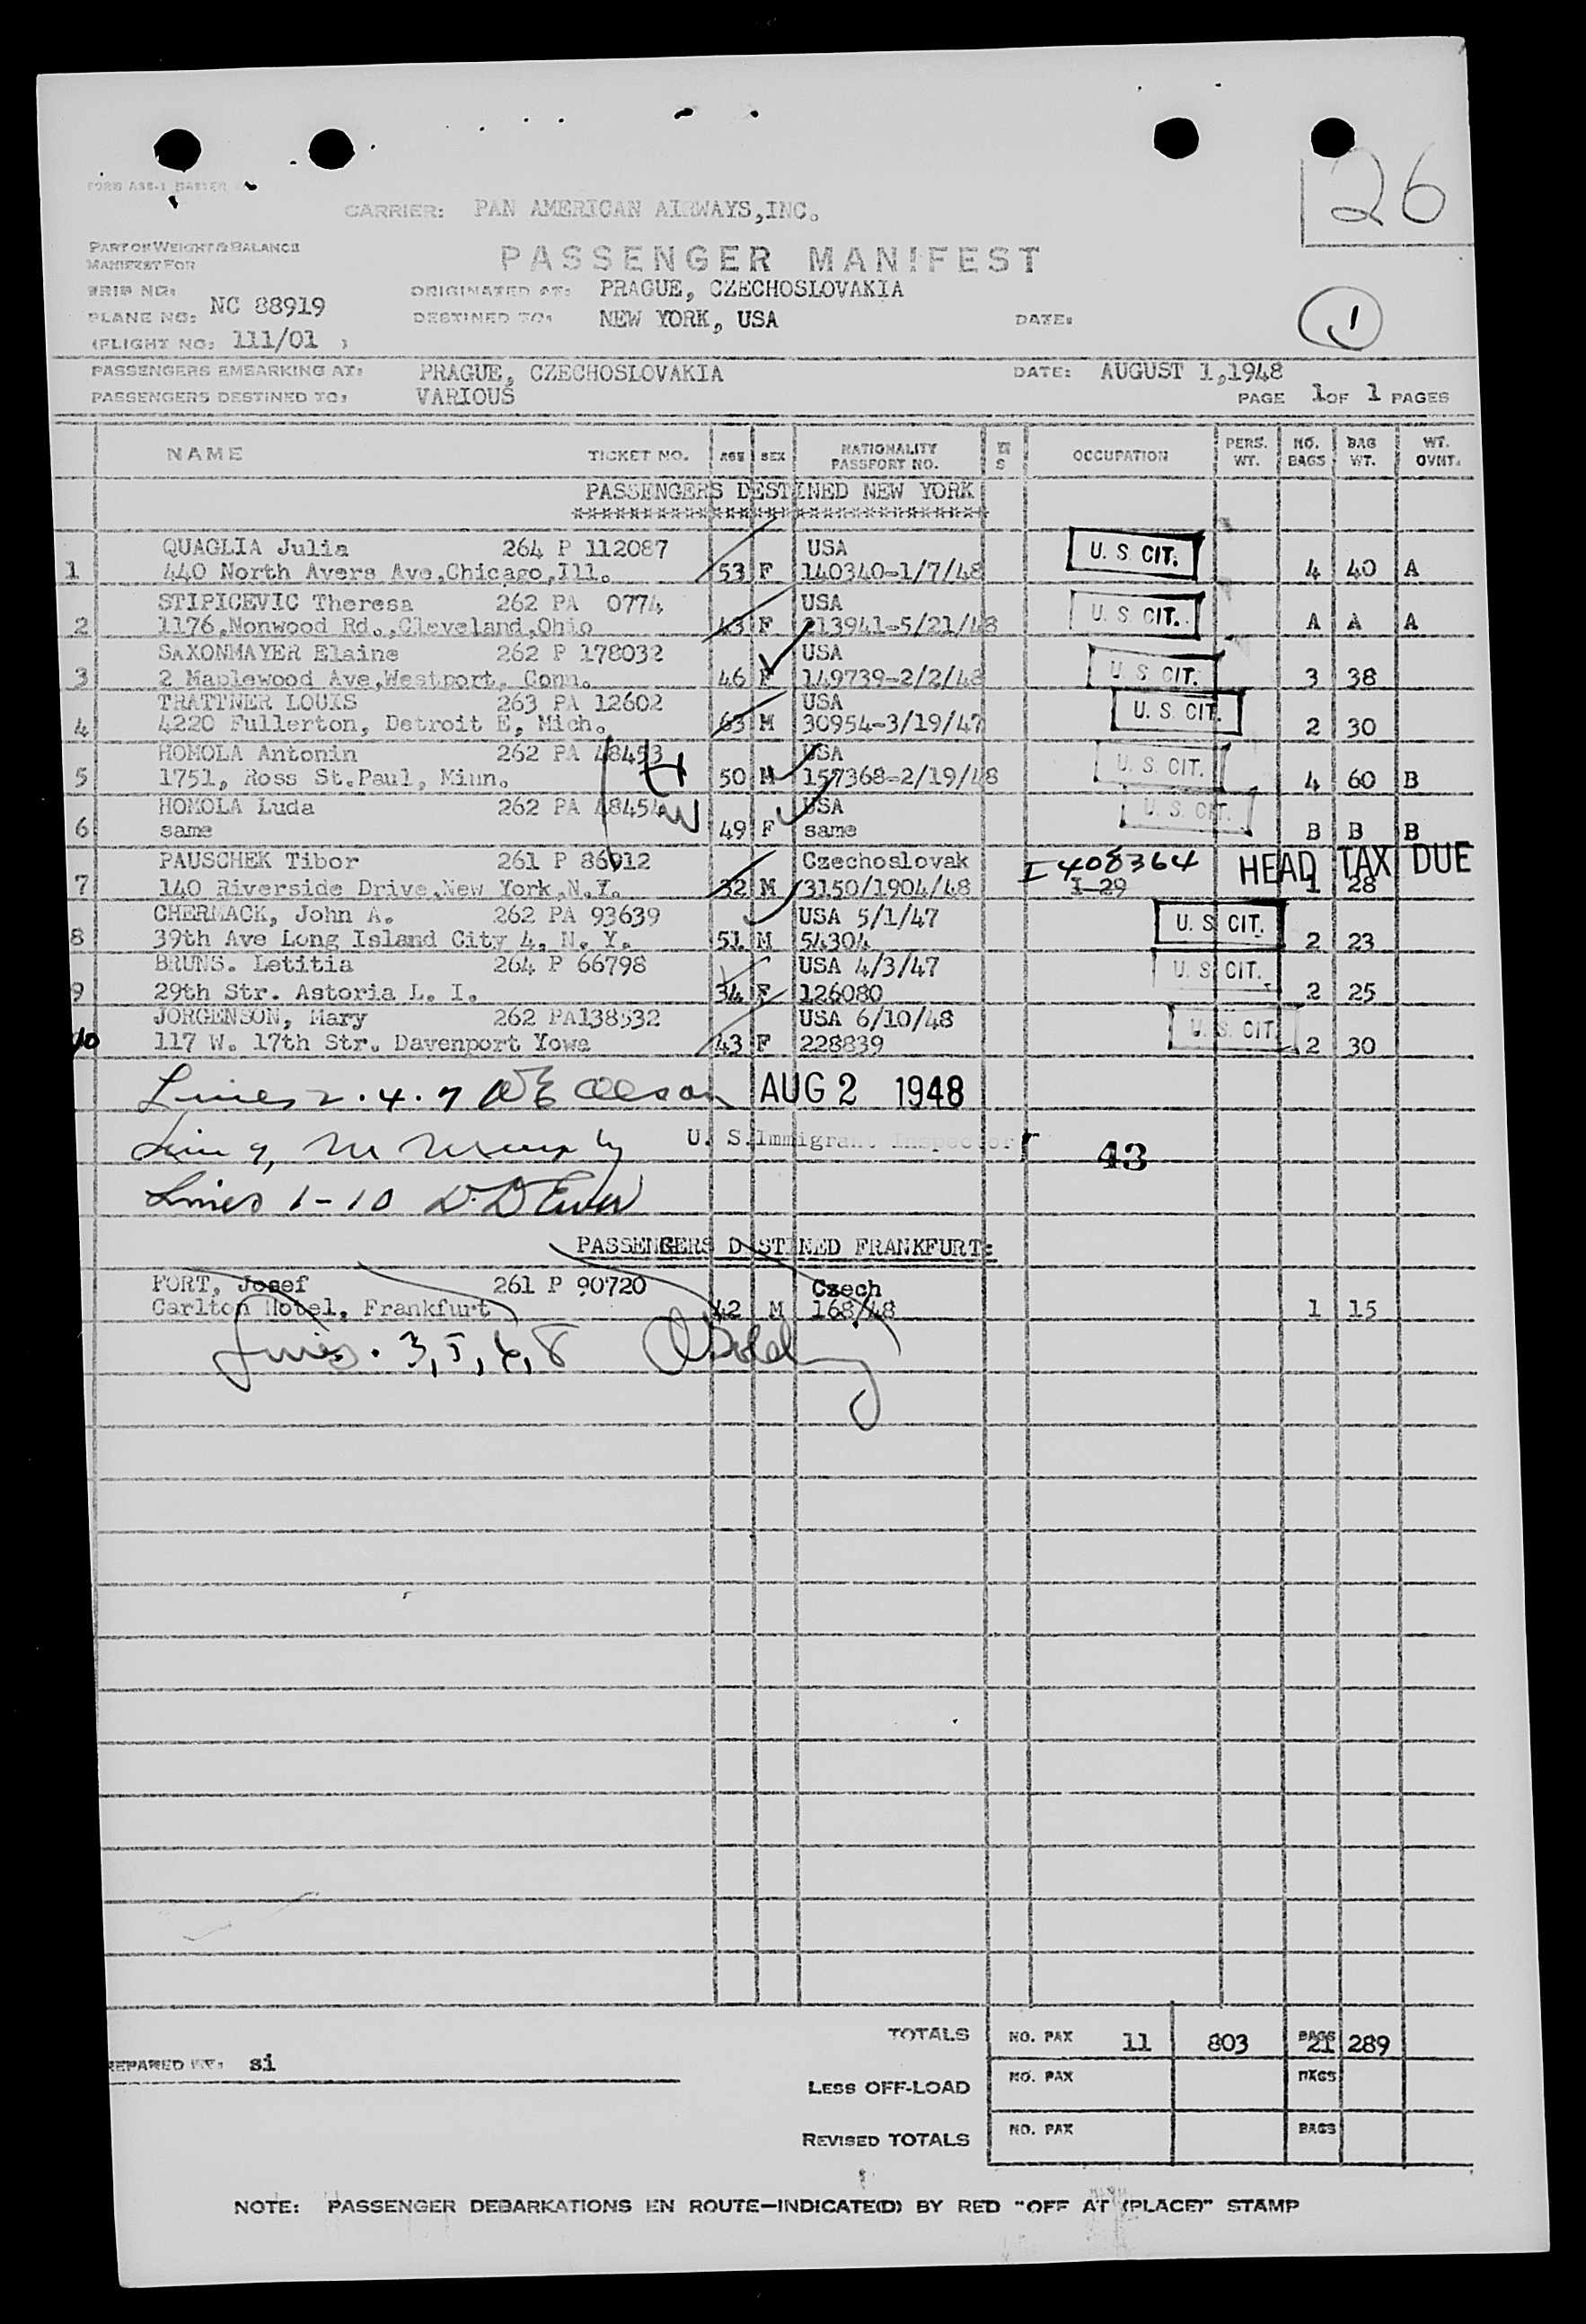 FORM ASS-1 MASTER
26
CARRIER: PAN AMERICAN AIRWAYS,INC.
PART OF WEIGHT & BALANCE
MANIFEST FOR
PASSENGER MANIFEST
TRIP NO:
ORIGINATED AT: PRAGUE, CZECHOSLOVAKIA
PLANE NO: NC 88919
DESTINED TO: NEW YORK, USA
DATE:
1
(FLIGHT NO: 111/01 )
PASSENGERS EMBARKING AT: PRAGUE, CZECHOSLOVAKIA DATE: AUGUST 1,1948
PASSENGERS DESTINED TO: VARIOUS PAGE 1 OF 1 PAGES
NAME TICKET NO. AGE SEX NATIONALITY PASSPORT NO. S OCCUPATION PERS. WT. NO. BAGS BAG WT. WT. OVNT.
PASSENGERS DESTINED NEW YORK
****************************
QUAGLIA Julia 264 P 112087 USA U. S. CIT.
1 440 North Avers Ave,Chicago,Ill. 53 F 140340-1/7/48 4 40 A
STIPICEVIC Theresa 262 PA 0774 USA U. S. CIT.
2 1176,Nonwood Rd.,Cleveland,Ohio 43 F 213941-5/21/48 A A A
SAXONMAYER Elaine 262 P 178032 USA U. S. CIT.
3 2 Maplewood Ave,Westport, Conn. 46 F 149739-2/2/48 3 38
TRATTNER LOUIS 263 PA 12602 USA U. S. CIT.
4 4220 Fullerton, Detroit E, Mich. 63 M 30954-3/19/47 2 30
HOMOLA Antonin 262 PA 48453 USA U. S. CIT.
5 1751, Ross St.Paul, Minn. 50 M 157368-2/19/48 4 60 B
HOMOLA Luda 262 PA 48454 USA U. S. CIT.
6 same 49 F same B B B
PAUSCHEK Tibor 261 P 86912 Czechoslovak I 408364 HEAD TAX DUE
7 140 Riverside Drive,New York,N.Y. 32 M 3150/1904/48 I-29 1 28
CHERMACK, John A. 262 PA 93639 USA 5/1/47 U. S. CIT.
8 39th Ave Long Island City 4, N. Y. 51 M 54304 2 23
BRUNS. Letitia 264 P 66798 USA 4/3/47 U. S. CIT.
9 29th Str. Astoria L. I. 34 F 126080 2 25
JORGENSON, Mary 262 PA138532 USA 6/10/48 U. S. CIT.
10 117 W. 17th Str. Davenport Yowa 43 F 228839 2 30
Lines 2.4.7 AUG 2 1948
Line 9, M U. S. Immigrant Inspector 43
Lines 1-10
PASSENGERS DESTINED FRANKFURT:
FORT, Josef 261 P 90720 Czech
Carlton Hotel, Frankfurt 42 M 168/48 1 15
Lines. 3, 5, 6, 8
TOTALS NO. PAX 11 803 BAGS 21 289
PREPARED BY: si
LESS OFF-LOAD NO. PAX BAGS
REVISED TOTALS NO. PAX BAGS
NOTE: PASSENGER DEBARKATIONS EN ROUTE—INDICATE(D) BY RED "OFF AT (PLACE)" STAMP